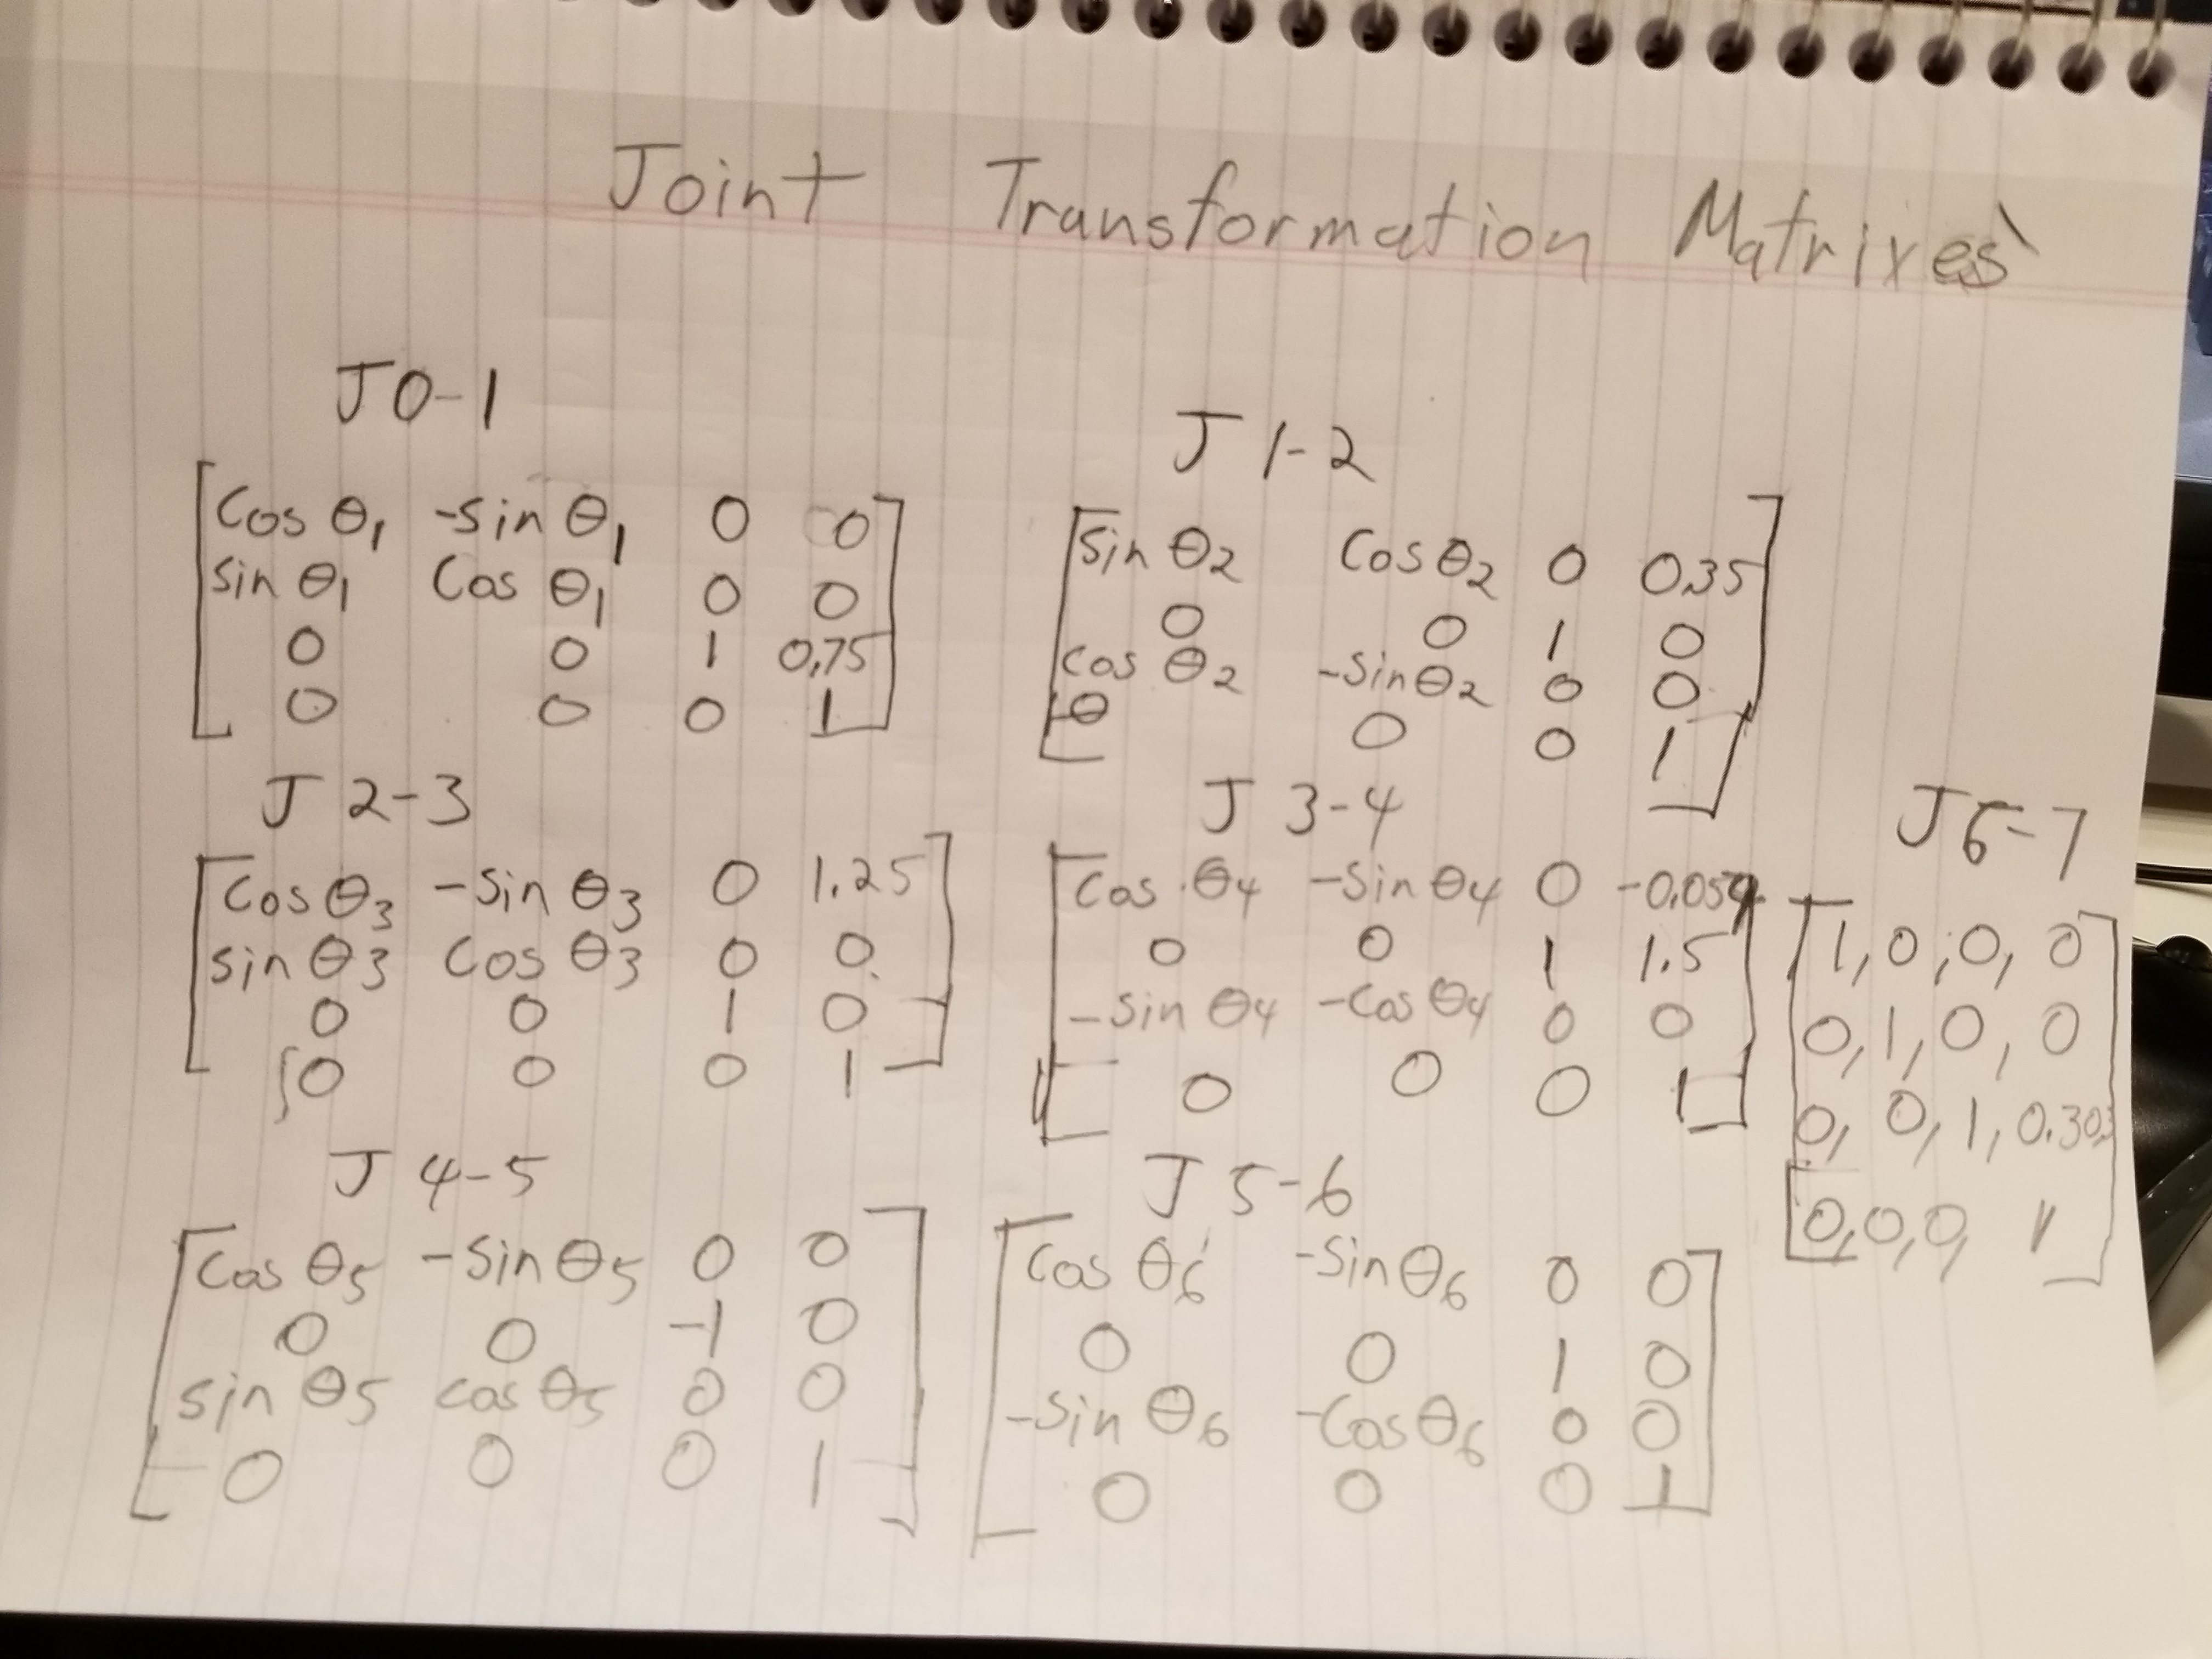 Joint Transformation Matrixes
J 0-1
cos θ1 -sin θ1 0 0
sin θ1 cos θ1 0 0
0 0 1 0.75
0 0 0 1
J 1-2
sin θ2 cos θ2 0 0.35
0 0 1 0
cos θ2 -sin θ2 0 0
0 0 0 1
J 2-3
cos θ3 -sin θ3 0 1.25
sin θ3 cos θ3 0 0
0 0 1 0
0 0 0 1
J 3-4
cos θ4 -sin θ4 0 -0.054
0 0 1 1.5
-sin θ4 -cos θ4 0 0
0 0 0 1
J 6-7
1, 0, 0, 0
0, 1, 0, 0
0, 0, 1, 0.303
0, 0, 0, 1
J 4-5
cos θ5 -sin θ5 0 0
0 0 -1 0
sin θ5 cos θ5 0 0
0 0 0 1
J 5-6
cos θ6 -sin θ6 0 0
0 0 1 0
-sin θ6 -cos θ6 0 0
0 0 0 1